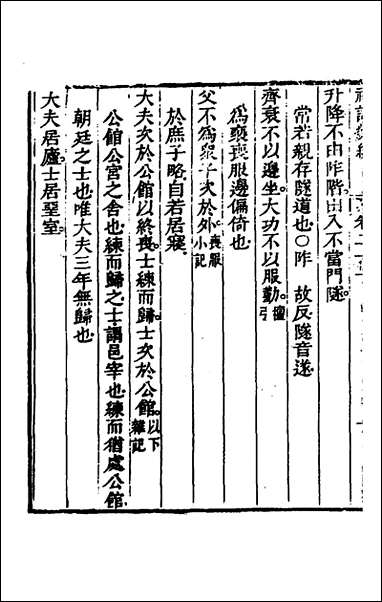 升降不由阼階出入不當門隧
常若親存隧道也○阼　故反隧音遂
齊衰不以邊坐大功不以服勤檀弓
為褻喪服邊偏倚也
父不為眾子次於外喪服小記
於庶子略自若居寢
大夫次於公館以終喪士練而歸士次於公館以下雜記
公館公宮之舍也練而歸之士謂邑宰也練而猶處公館
朝廷之士也唯大夫三年無歸也
大夫居廬士居堊室